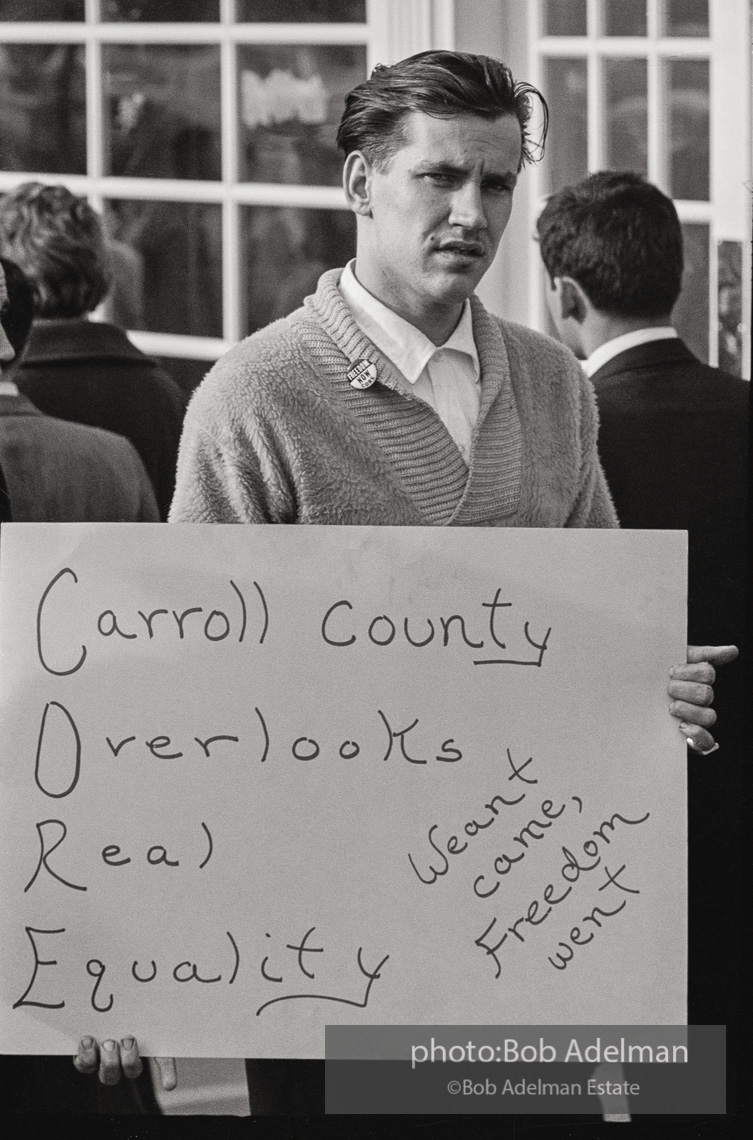 FREEDOM
NOW
CORE
Carroll County
Overlooks
Real
Equality
Weant
came,
Freedom
went
photo:Bob Adelman
©Bob Adelman Estate